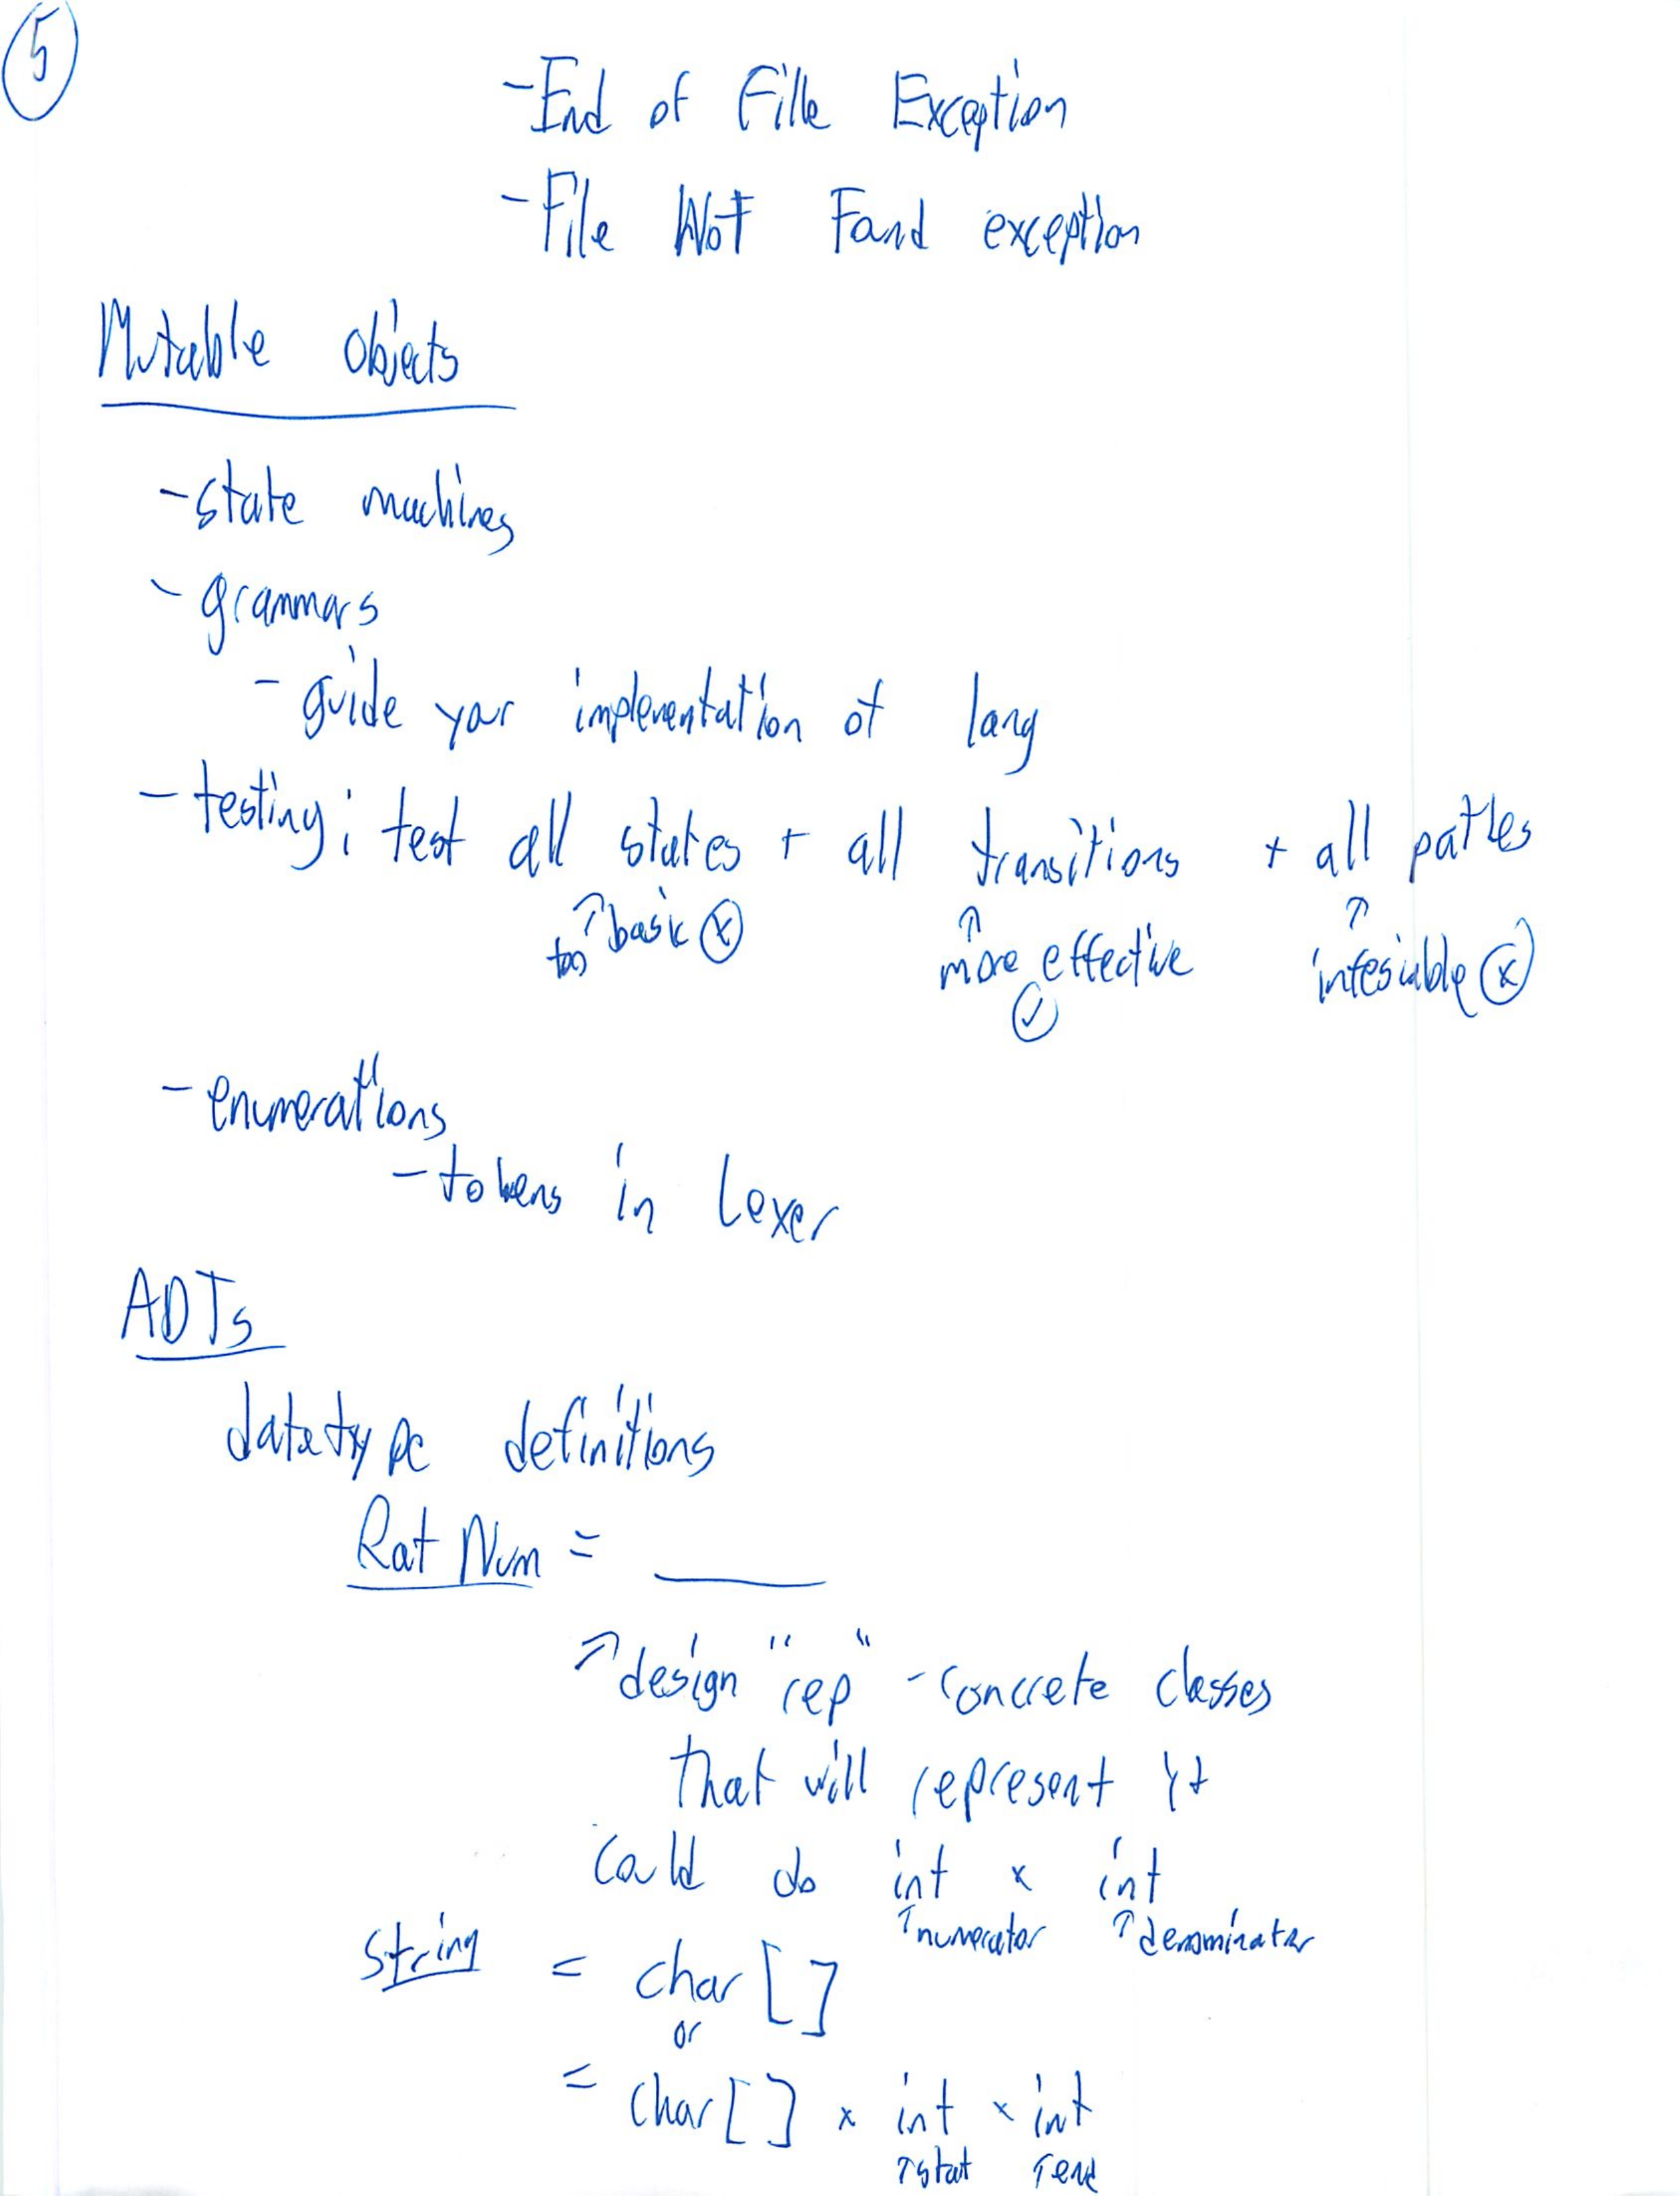 5
-End of Fille Exception
-File Not Found exception
Mutable objects
-state machines
- grammars
- guide your implementation of lang
- testing; test all states + all transitions + all paths
↑ too basic ⓧ ↑ more effective ✓ ↑ infesiable ⓧ
- enumerations
- tokens in Lexer
ADTs
datatype definitions
Rat Num = ____
↗ design "rep" - concrete classes
that will represent it
Could do int x int
↑ numerator ↑ denominator
string = char []
or
= char [] x int x int
↑ stat ↑ end